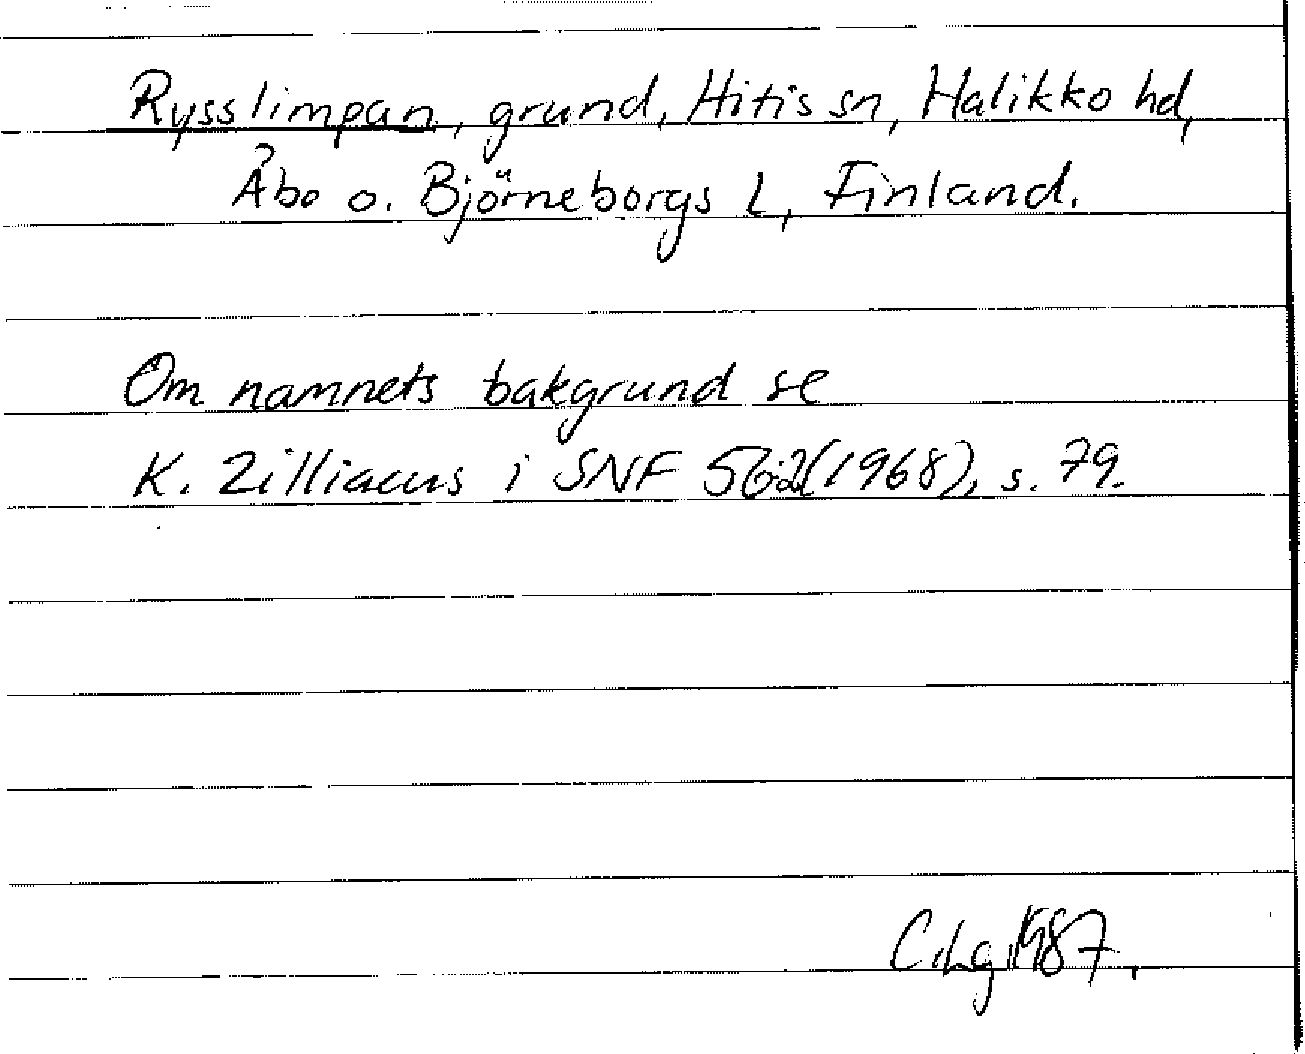 Rysslimpan, grund, Hitis sn, Halikko hd,
Åbo o. Björneborgs L, Finland.
Om namnets bakgrund se
K. Zilliacus i SNF 56:2(1968), s. 79.
C.Lg 1987.